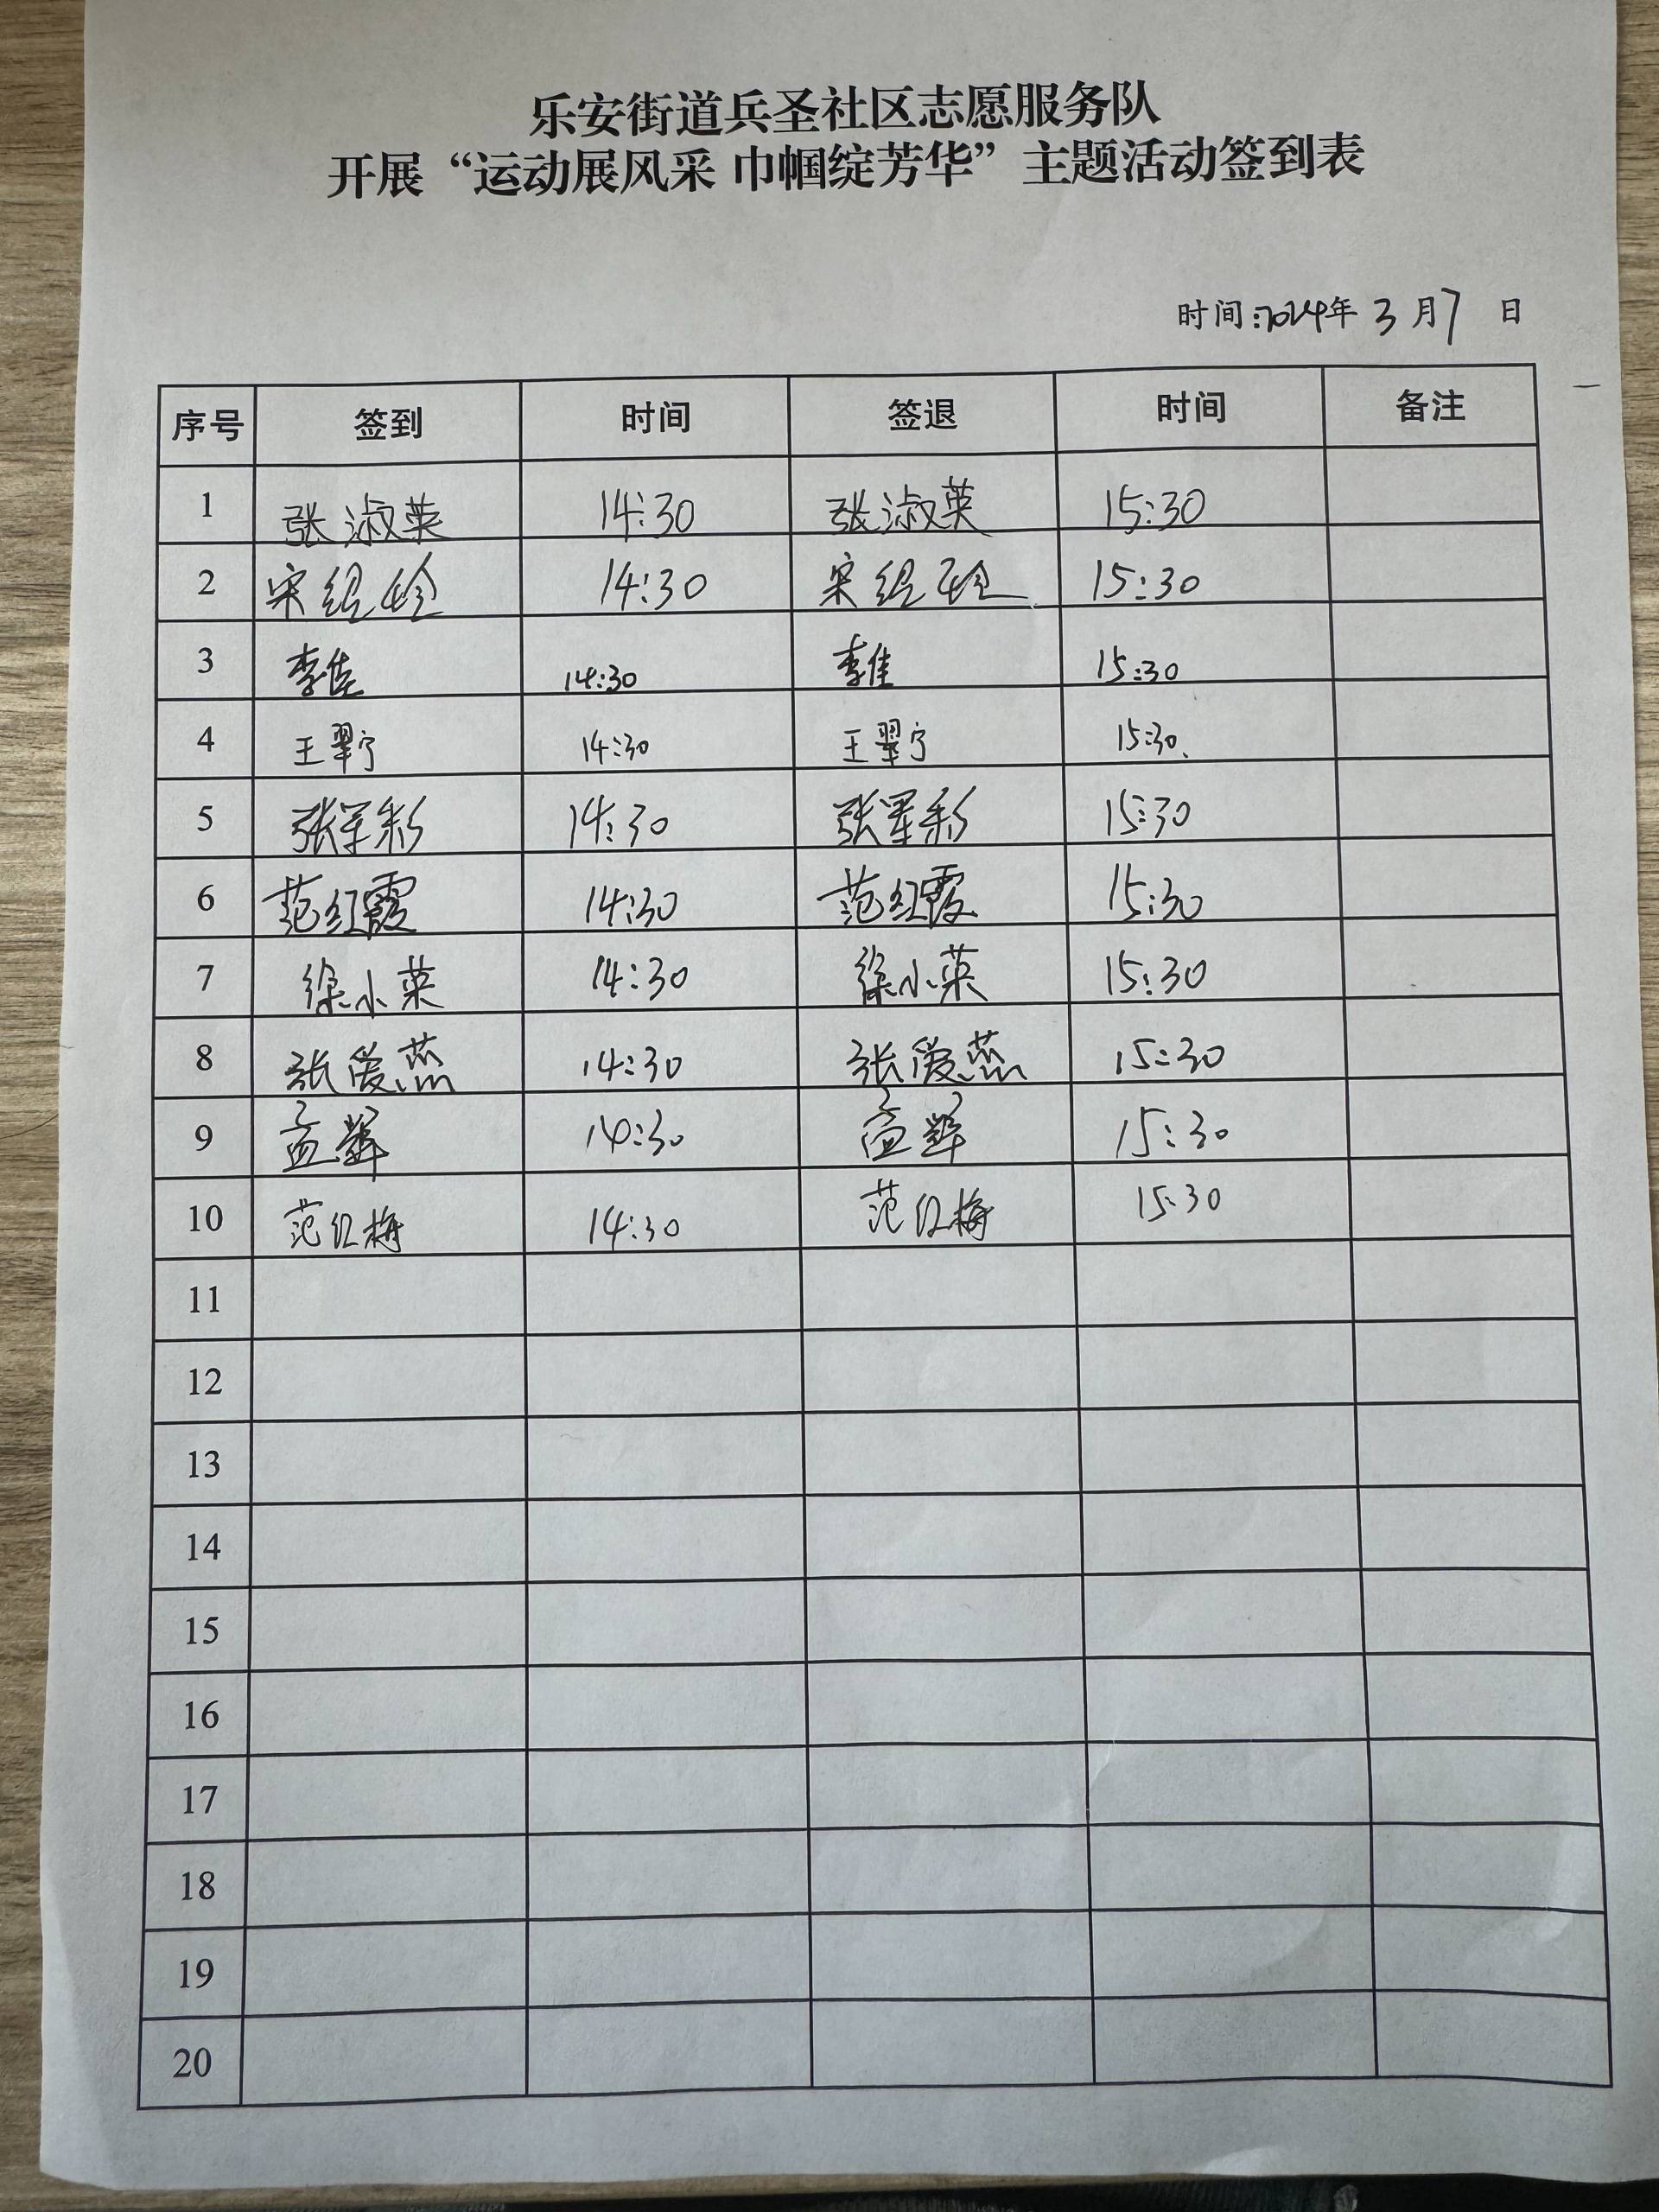 乐安街道兵圣社区志愿服务队
开展“运动展风采 巾帼绽芳华”主题活动签到表
时间:2024年 3 月 7 日
序号 签到 时间 签退 时间 备注
1 张淑英 14:30 张淑英 15:30
2 宋绍玲 14:30 宋绍玲 15:30
3 李佳 14:30 李佳 15:30
4 王翠宁 14:30 王翠宁 15:30
5 张军彩 14:30 张军彩 15:30
6 范红霞 14:30 范红霞 15:30
7 徐小英 14:30 徐小英 15:30
8 张爱燕 14:30 张爱燕 15:30
9 14:30 15:30
10 范红梅 14:30 范红梅 15:30
11
12
13
14
15
16
17
18
19
20